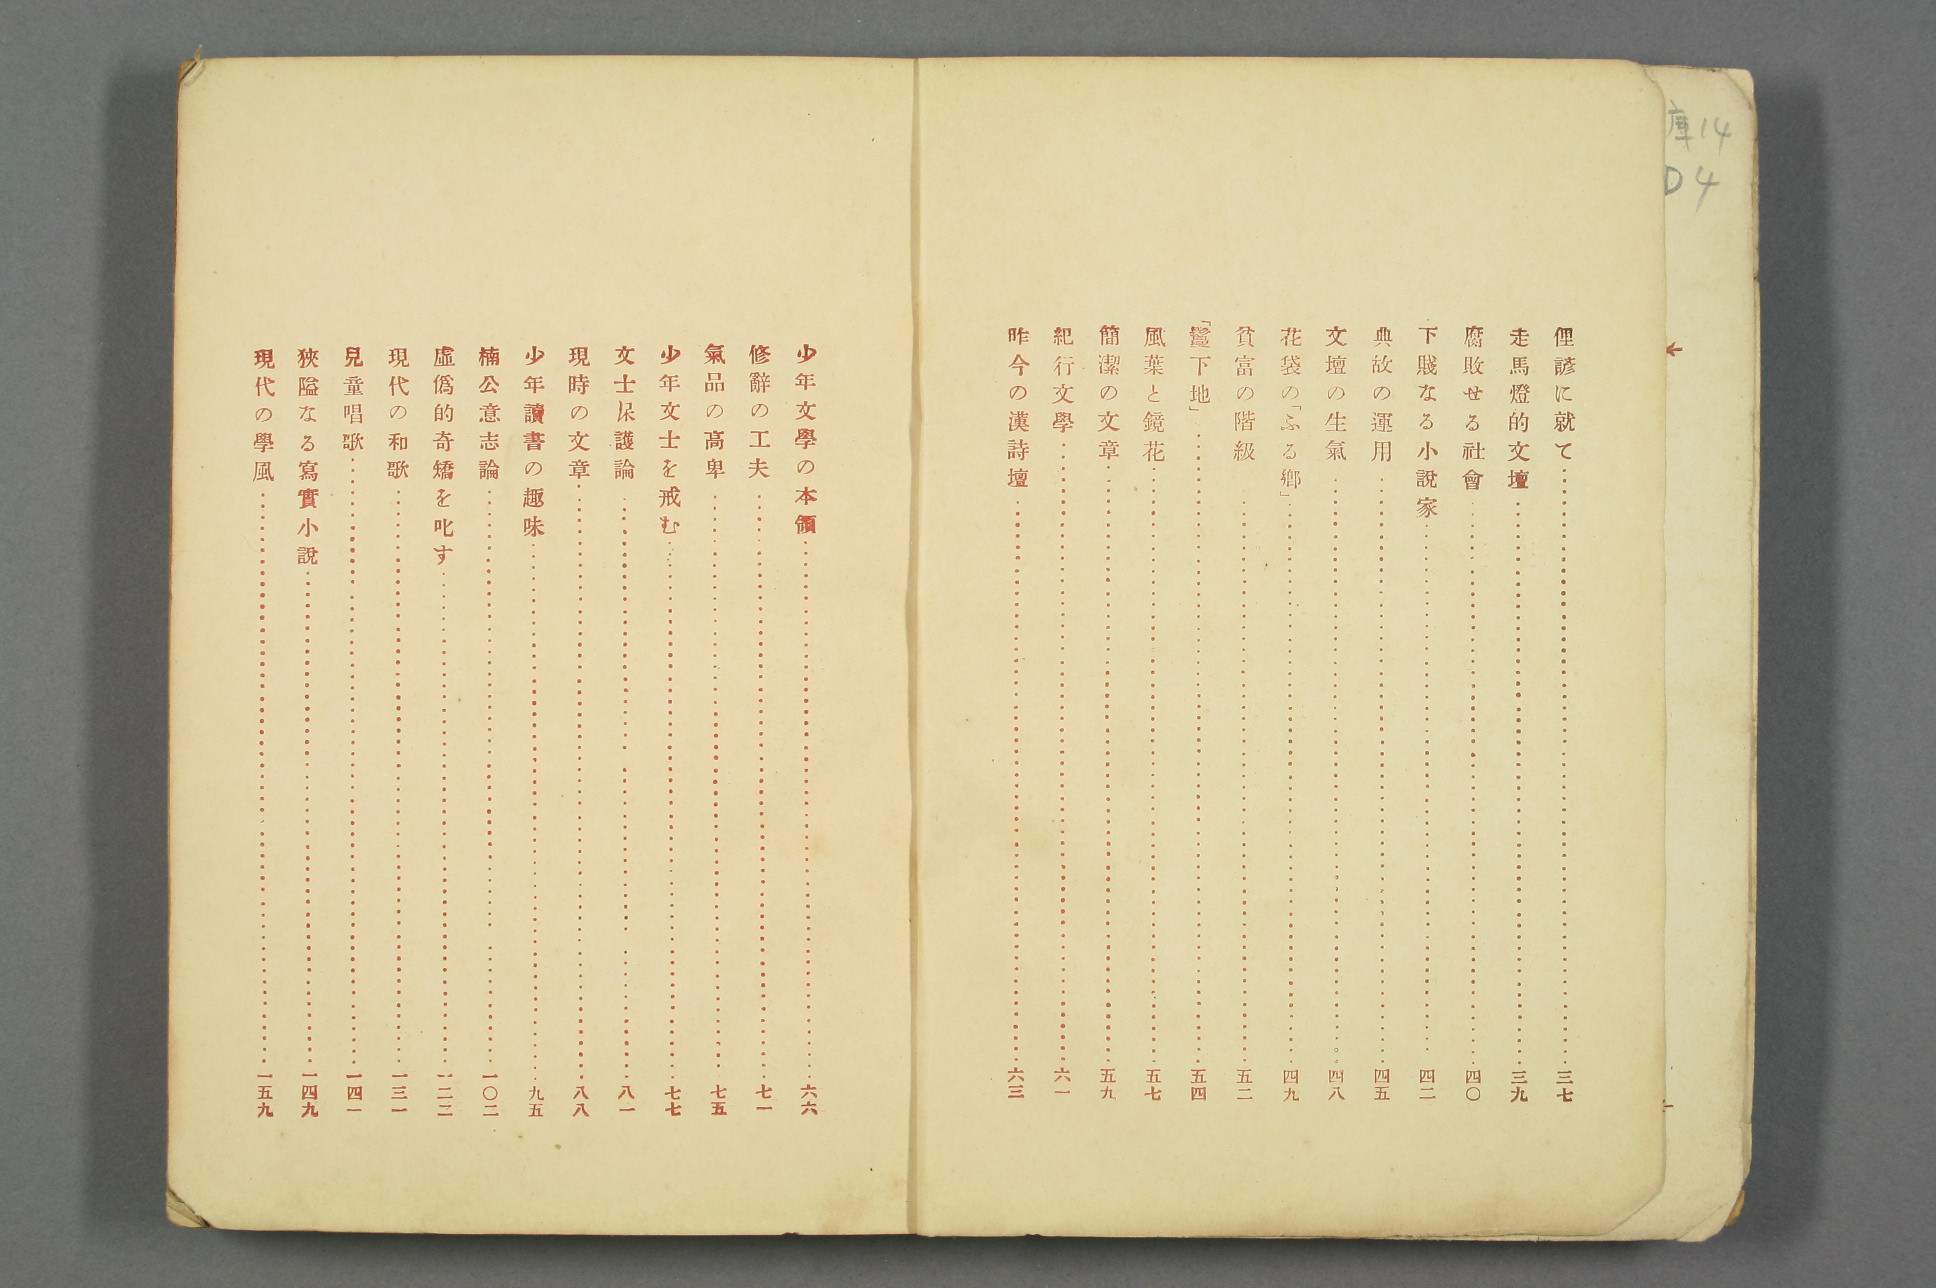 俚諺に就て……三七
走馬燈的文壇……三九
腐敗せる社會……四〇
下賤なる小說家……四二
典故の運用……四五
文壇の生氣……四八
花袋の「ふる鄕」……四九
貧富の階級……五二
「鬘下地」……五四
風葉と鏡花……五七
簡潔の文章……五九
紀行文學……六一
昨今の漢詩壇……六三
少年文學の本領……六六
修辭の工夫……七一
氣品の高卑……七五
少年文士を戒む……七七
文士保護論……八一
現時の文章……八八
少年讀書の趣味……九五
楠公意志論……一〇二
虛僞的奇矯を叱す……一二二
現代の和歌……一三一
兒童唱歌……一四一
狹隘なる寫實小說……一四九
現代の學風……一五九
庫14
D4